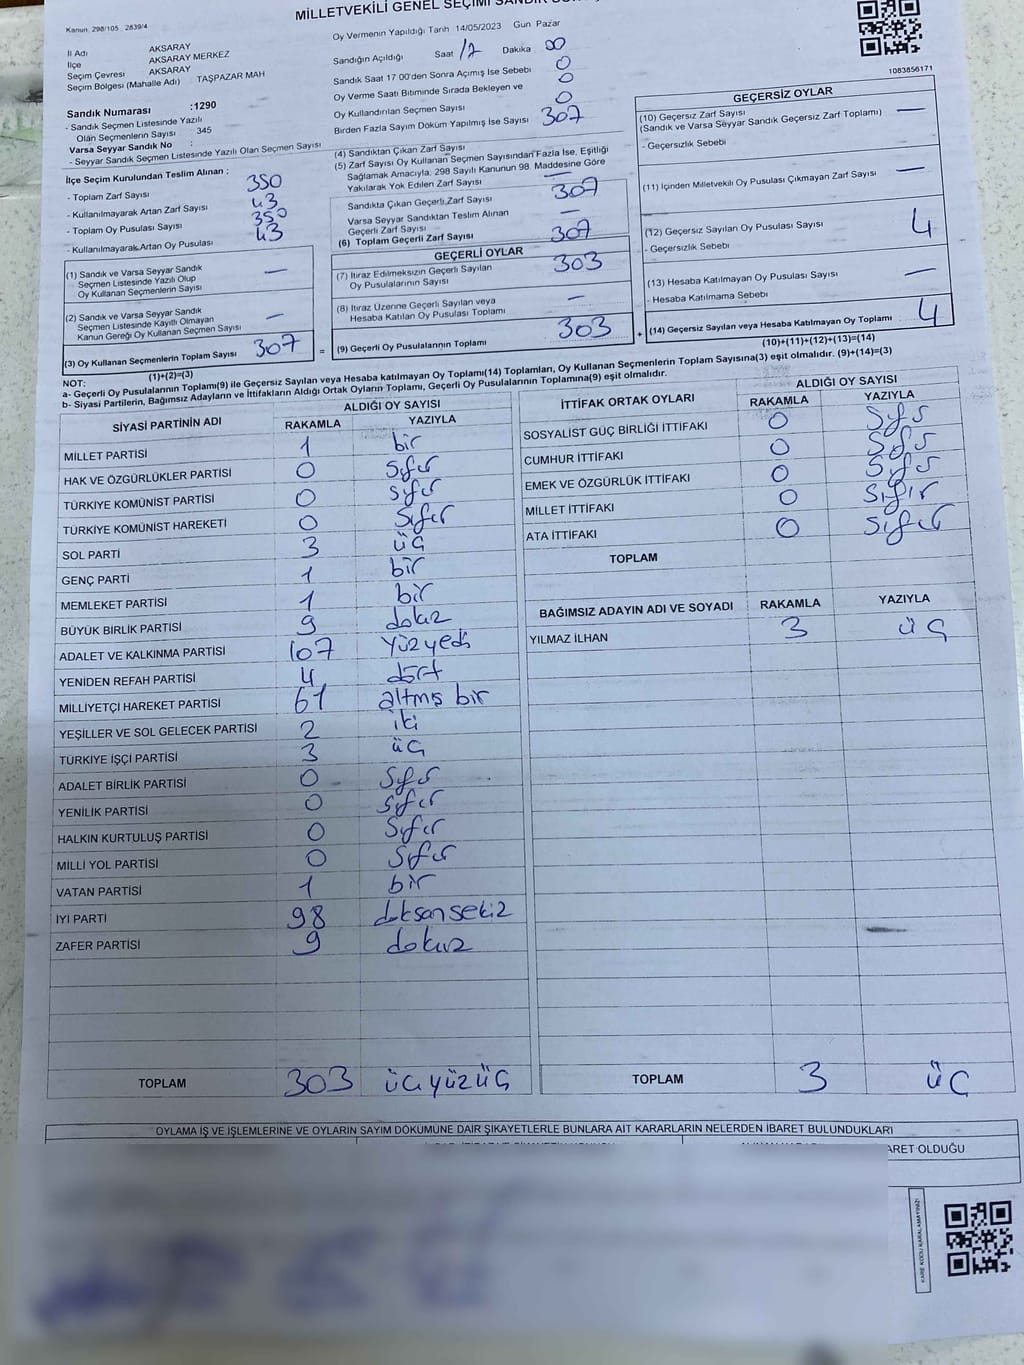 MİLLETVEKİLİ GENEL SEÇİMİ SANDIK
Kanun: 298/105 2839/4
İl Adı AKSARAY
İlçe AKSARAY MERKEZ
Seçim Çevresi AKSARAY
Seçim Bölgesi (Mahalle Adı) TAŞPAZAR MAH
Sandık Numarası :1290
- Sandık Seçmen Listesinde Yazılı
Olan Seçmenlerin Sayısı 345
Varsa Seyyar Sandık No :
- Seyyar Sandık Seçmen Listesinde Yazılı Olan Seçmen Sayısı
İlçe Seçim Kurulundan Teslim Alınan :
- Toplam Zarf Sayısı 350
- Kullanılmayarak Artan Zarf Sayısı 43
- Toplam Oy Pusulası Sayısı 350
- Kullanılmayarak Artan Oy Pusulası 43
(1) Sandık ve Varsa Seyyar Sandık
Seçmen Listesinde Yazılı Olup
Oy Kullanan Seçmenlerin Sayısı —
(2) Sandık ve Varsa Seyyar Sandık
Seçmen Listesinde Kayıtlı Olmayan
Kanun Gereği Oy Kullanan Seçmen Sayısı —
(3) Oy Kullanan Seçmenlerin Toplam Sayısı 307
(1)+(2)=(3)
Oy Vermenin Yapıldığı Tarih 14/05/2023 Gün Pazar
Sandığın Açıldığı Saat 17 Dakika 00
Sandık Saat 17 00'den Sonra Açımış İse Sebebi 0
Oy Verme Saati Bitiminde Sırada Bekleyen ve 0
Oy Kullandırılan Seçmen Sayısı 0
Birden Fazla Sayım Döküm Yapılmış İse Sayısı
(4) Sandıktan Çıkan Zarf Sayısı 307
(5) Zarf Sayısı Oy Kullanan Seçmen Sayısından Fazla İse, Eşitliği
Sağlamak Amacıyla, 298 Sayılı Kanunun 98. Maddesine Göre
Yakılarak Yok Edilen Zarf Sayısı —
Sandıkta Çıkan Geçerli Zarf Sayısı 307
Varsa Seyyar Sandıktan Teslim Alınan
Geçerli Zarf Sayısı —
(6) Toplam Geçerli Zarf Sayısı 307
GEÇERLİ OYLAR
(7) İtiraz Edilmeksizin Geçerli Sayılan
Oy Pusulalarının Sayısı 303
(8) İtiraz Üzerine Geçerli Sayılan veya
Hesaba Katılan Oy Pusulası Toplamı —
= (9) Geçerli Oy Pusulalarının Toplamı 303 +
1083856171
GEÇERSİZ OYLAR
(10) Geçersiz Zarf Sayısı —
(Sandık ve Varsa Seyyar Sandık Geçersiz Zarf Toplamı)
- Geçersizlik Sebebi
(11) İçinden Milletvekili Oy Pusulası Çıkmayan Zarf Sayısı —
(12) Geçersiz Sayılan Oy Pusulası Sayısı 4
- Geçersizlik Sebebi
(13) Hesaba Katılmayan Oy Pusulası Sayısı —
- Hesaba Katılmama Sebebi
(14) Geçersiz Sayılan veya Hesaba Katılmayan Oy Toplamı 4
(10)+(11)+(12)+(13)=(14)
NOT:
a- Geçerli Oy Pusulalarının Toplamı(9) ile Geçersiz Sayılan veya Hesaba katılmayan Oy Toplamı(14) Toplamları, Oy Kullanan Seçmenlerin Toplam Sayısına(3) eşit olmalıdır. (9)+(14)=(3)
b- Siyasi Partilerin, Bağımsız Adayların ve İttifakların Aldığı Ortak Oyların Toplamı, Geçerli Oy Pusulalarının Toplamına(9) eşit olmalıdır.
SİYASİ PARTİNİN ADI ALDIĞI OY SAYISI
RAKAMLA YAZIYLA
MİLLET PARTİSİ 1 bir
HAK VE ÖZGÜRLÜKLER PARTİSİ 0 Sıfır
TÜRKİYE KOMÜNİST PARTİSİ 0 Sıfır
TÜRKİYE KOMÜNİST HAREKETİ 0 Sıfır
SOL PARTİ 3 üç
GENÇ PARTİ 1 bir
MEMLEKET PARTİSİ 1 bir
BÜYÜK BİRLİK PARTİSİ 9 dokuz
ADALET VE KALKINMA PARTİSİ 107 Yüzyedi
YENİDEN REFAH PARTİSİ 4 dört
MİLLİYETÇİ HAREKET PARTİSİ 61 altmış bir
YEŞİLLER VE SOL GELECEK PARTİSİ 2 iki
TÜRKİYE İŞÇİ PARTİSİ 3 üç
ADALET BİRLİK PARTİSİ 0 Sıfır
YENİLİK PARTİSİ 0 Sıfır
HALKIN KURTULUŞ PARTİSİ 0 Sıfır
MİLLİ YOL PARTİSİ 0 Sıfır
VATAN PARTİSİ 1 bir
İYİ PARTİ 98 doksansekiz
ZAFER PARTİSİ 9 dokuz
TOPLAM 303 üçyüzüç
İTTİFAK ORTAK OYLARI ALDIĞI OY SAYISI
RAKAMLA YAZIYLA
SOSYALİST GÜÇ BİRLİĞİ İTTİFAKI 0 Sıfır
CUMHUR İTTİFAKI 0 Sıfır
EMEK VE ÖZGÜRLÜK İTTİFAKI 0 Sıfır
MİLLET İTTİFAKI 0 Sıfır
ATA İTTİFAKI 0 Sıfır
TOPLAM
BAĞIMSIZ ADAYIN ADI VE SOYADI RAKAMLA YAZIYLA
YILMAZ İLHAN 3 üç
TOPLAM 3 üç
OYLAMA İŞ VE İŞLEMLERİNE VE OYLARIN SAYIM DÖKÜMÜNE DAİR ŞİKAYETLERLE BUNLARA AİT KARARLARIN NELERDEN İBARET BULUNDUKLARI
OLDUĞU
KARE KODU KARALAMAYINIZ!